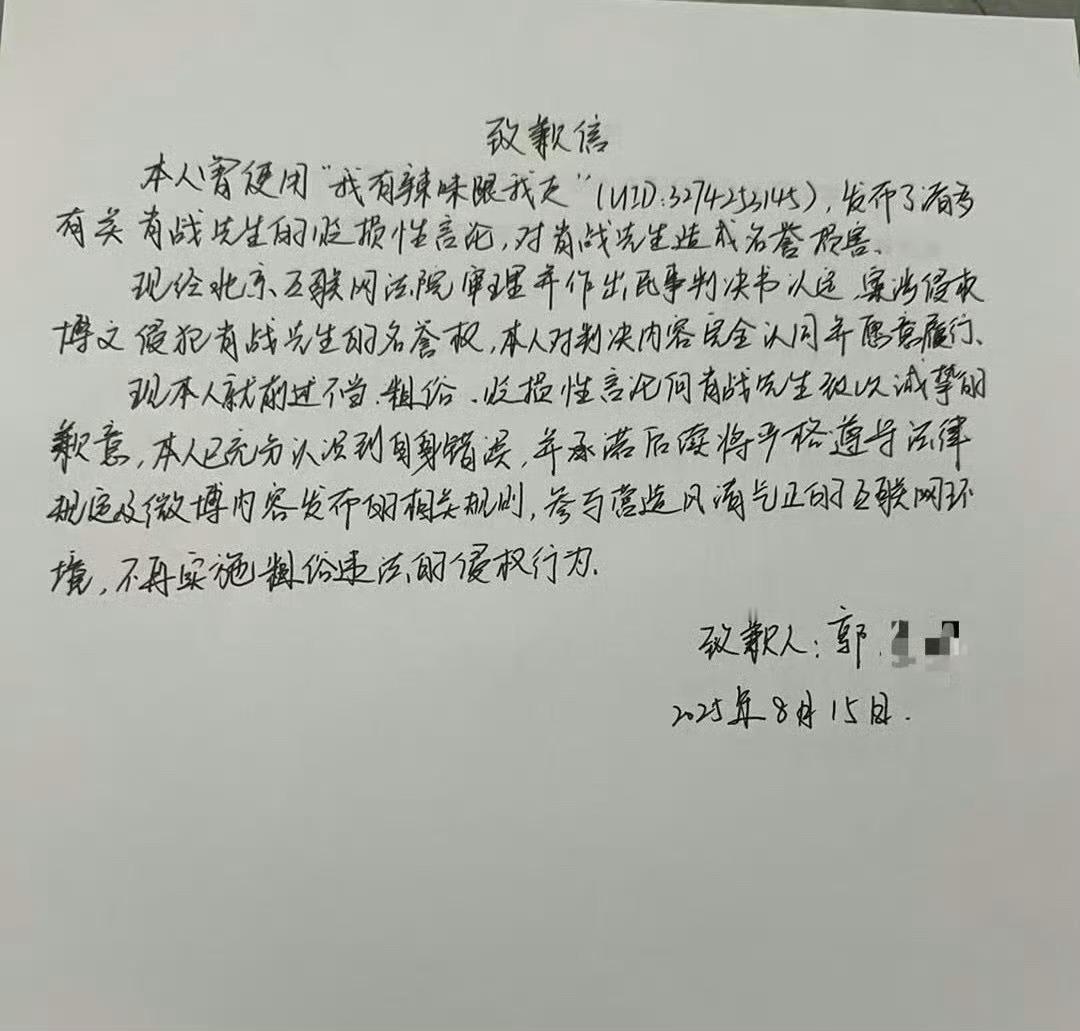 致歉信
本人曾使用“我有辣味跟我走”(UID:3274253145),发布了诸多
有关肖战先生的贬损性言论,对肖战先生造成名誉损害、
现经北京互联网法院审理并作出民事判决书认定,案涉侵权
博文侵犯肖战先生的名誉权,本人对判决内容完全认同并愿意履行、
现本人就前述不当、粗俗、贬损性言论向肖战先生致以诚挚的
歉意,本人已充分认识到自身错误,并承诺后续将严格遵守法律
规定及微博内容发布的相关规则,参与营造风清气正的互联网环
境,不再实施粗俗违法的侵权行为、
致歉人:郭
2025年8月15日.